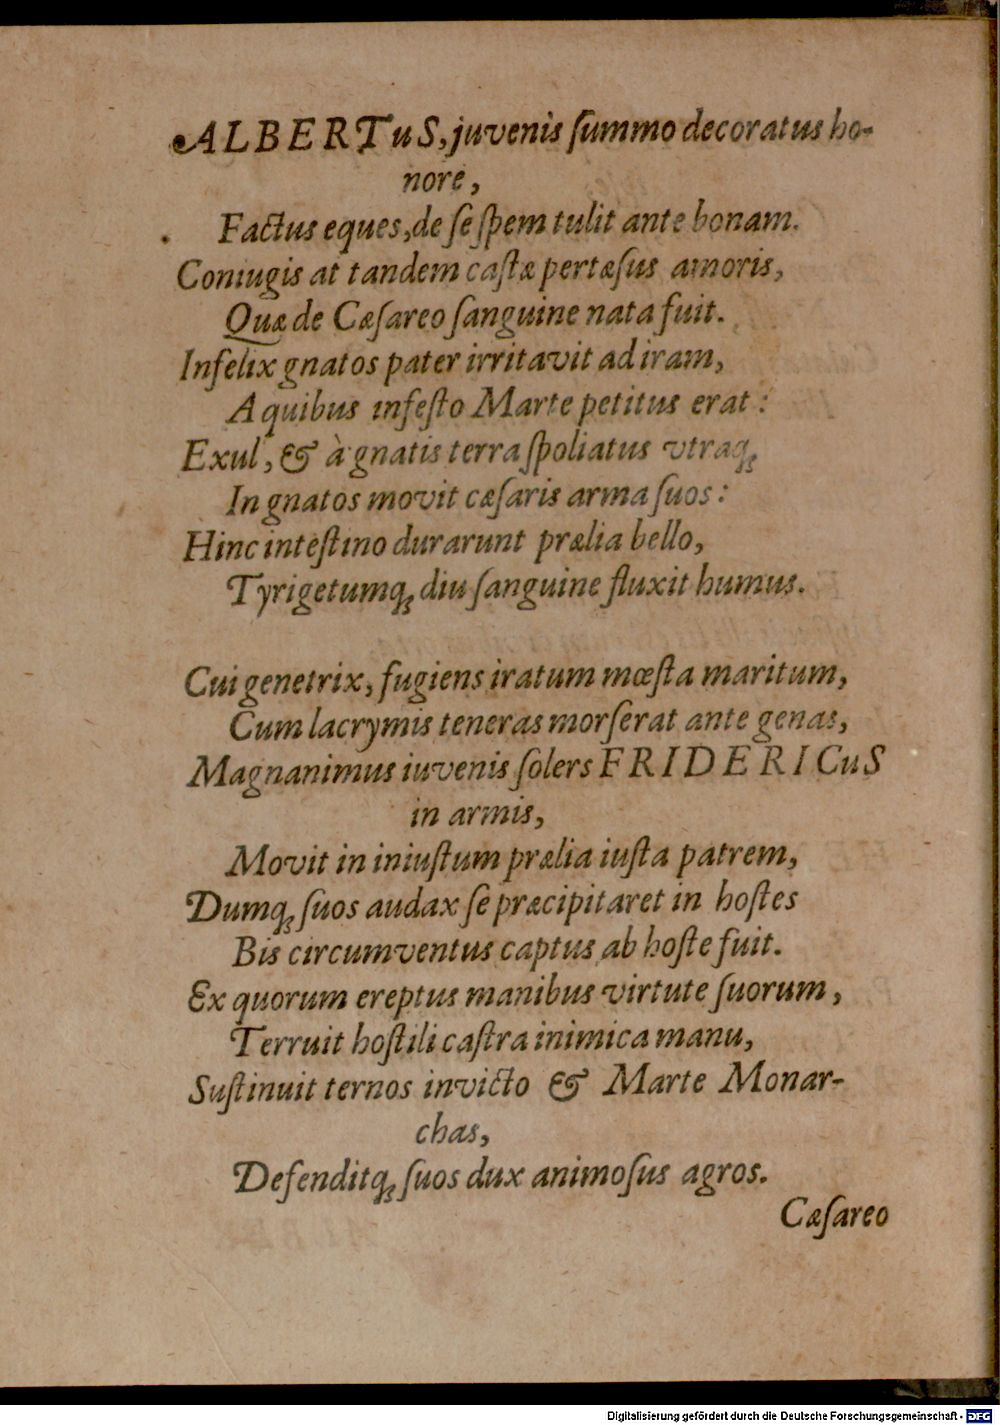 ALBERTuS, juvenis ſummo decoratus ho-
nore,
Factus eques, de ſe ſpem tulit ante bonam.
Coniugis at tandem caſtæ pertæſus amoris,
Quæ de Cæſareo ſanguine nata fuit.
Infelix gnatos pater irritavit ad iram,
A quibus infeſto Marte petitus erat:
Exul, & à gnatis terra ſpoliatus vtraqꝫ
In gnatos movit cæſaris arma ſuos:
Hinc inteſtino durarunt prælia bello,
Tyrigetumqꝫ diu ſanguine fluxit humus.
Cui genetrix, fugiens iratum mœſta maritum,
Cum lacrymis teneras morſerat ante genas,
Magnanimus iuvenis ſolers FRIDERICuS
in armis,
Movit in iniuſtum prælia iuſta patrem,
Dumqꝫ ſuos audax ſe præcipitaret in hoſtes
Bis circumventus captus ab hoſte fuit.
Ex quorum ereptus manibus virtute ſuorum,
Terruit hoſtili caſtra inimica manu,
Suſtinuit ternos invicto & Marte Monar-
chas,
Defenditqꝫ ſuos dux animoſus agros.
Cæſareo
Digitalisierung gefördert durch die Deutsche Forschungsgemeinschaft - DFG